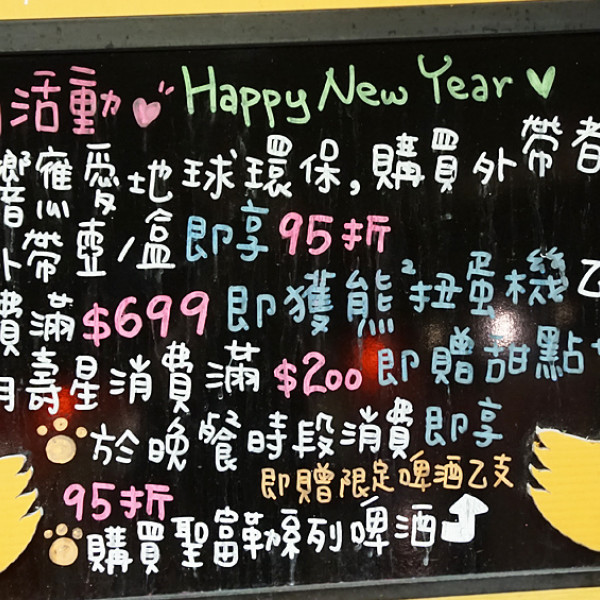 活動 Happy New Year
響應愛地球環保,購買外帶者
外帶壺/盒即享95折
費滿$699即獲熊²扭蛋機乙
壽星消費滿$200即贈甜點
於晚餐時段消費即享
95折
即贈限定啤酒乙支
購買聖富勒系列啤酒